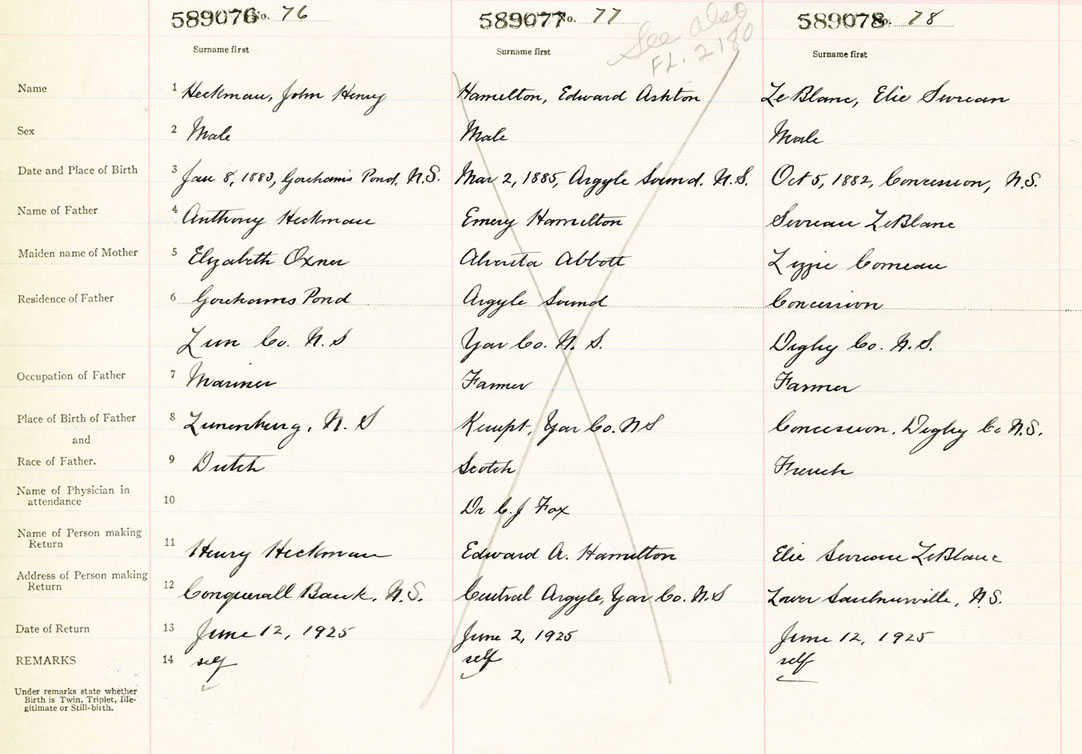 589076 No. 76 589077 No. 77 589078 No. 78
See also
FL. 2180
Surname first Surname first Surname first
Name 1 Heckman, John Henry Hamilton, Edward Ashton LeBlanc, Elie Sureau
Sex 2 Male Male Male
Date and Place of Birth 3 Jan 8, 1883, Gorehams Pond, N.S. Mar 2, 1885, Argyle Sound. N.S. Oct 5, 1882, Concession, N.S.
Name of Father 4 Anthony Heckman Emery Hamilton Sureau LeBlanc
Maiden name of Mother 5 Elizabeth Oxner Alvreta Abbott Lizzie Comeau
Residence of Father 6 Gorehams Pond Argyle Sound Concession
Lun Co. N.S Yar Co. N.S. Digby Co. N.S.
Occupation of Father 7 Mariner Farmer Farmer
Place of Birth of Father 8 Lunenburg, N.S Kempt, Yar Co. N S Concession. Digby Co N.S.
and
Race of Father. 9 Dutch Scotch French
Name of Physician in
attendance 10 Dr C. J Fox
Name of Person making
Return 11 Henry Heckman Edward A. Hamilton Elie Sureau LeBlanc
Address of Person making
Return 12 Conquerall Bank, N.S. Central Argyle, Yar Co. N.S Lower Saulnierville, N.S.
Date of Return 13 June 12, 1925 June 2, 1925 June 12, 1925
REMARKS 14 self self self
Under remarks state whether
Birth is Twin, Triplet, Ille-
gitimate or Still-birth.